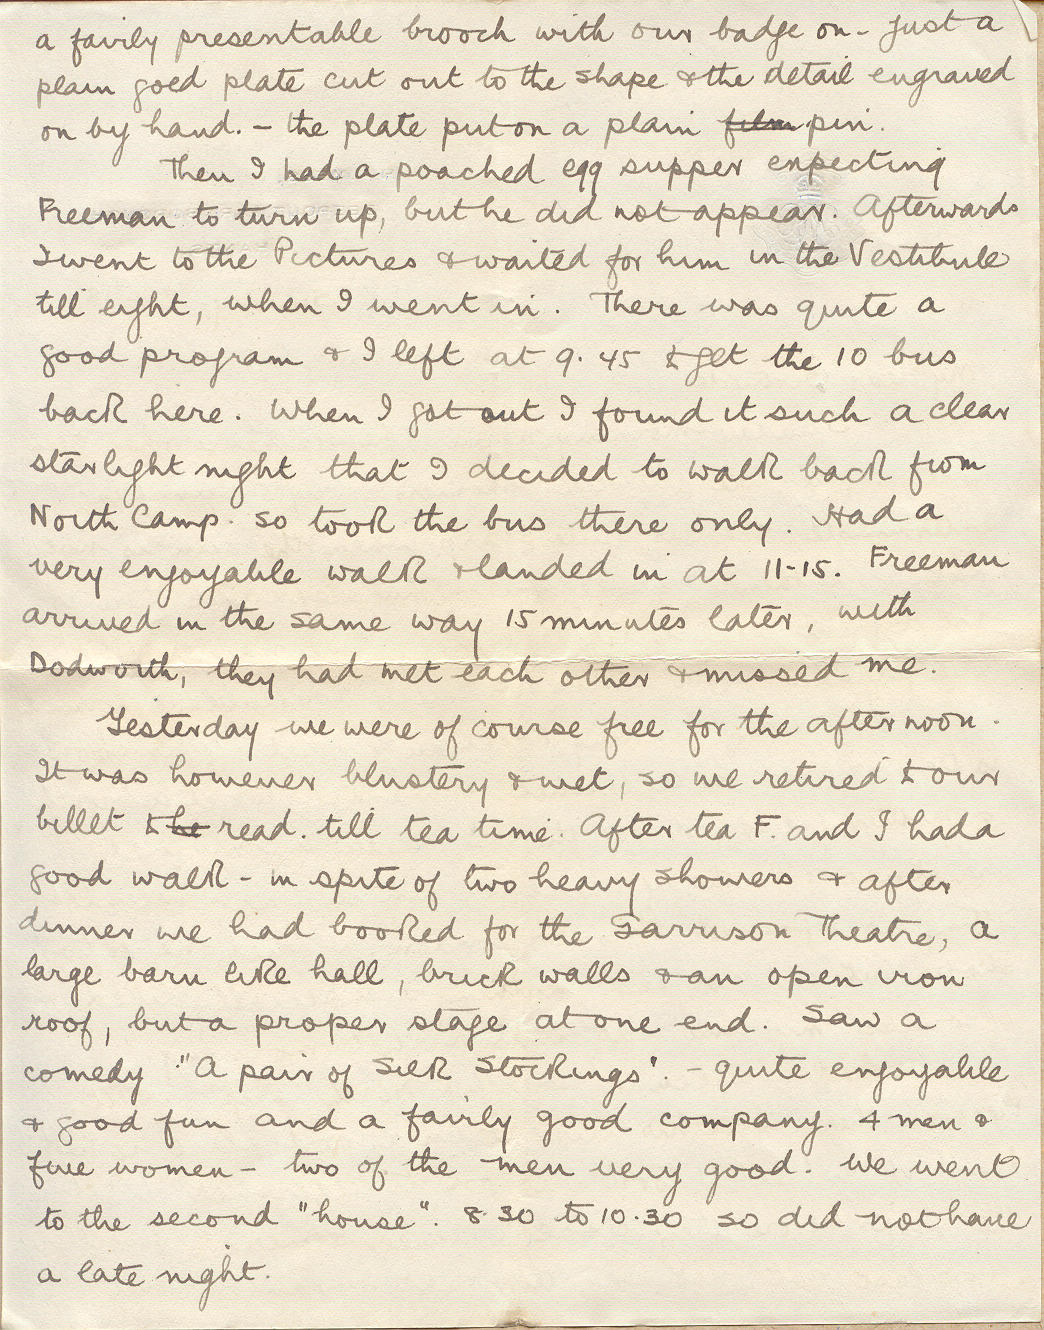 a fairly presentable brooch with our badge on - just a
plain gold plate cut out to the shape & the detail engraved
on by hand. - the plate put on a plain film pin.
Then I had a poached egg supper expecting
Freeman to turn up, but he did not appear. Afterwards
I went to the Pictures & waited for him in the Vestibule
till eight, when I went in. There was quite a
good program & I left at 9.45 to get the 10 bus
back here. When I got out I found it such a clear
starlight night that I decided to walk back from
North Camp. so took the bus there only. Had a
very enjoyable walk & landed in at 11-15. Freeman
arrived in the same way 15 minutes later, with
Dodworth, they had met each other & missed me.
Yesterday we were of course free for the afternoon.
It was however blustery & wet, so we retired to our
billet to he read. till tea time. After tea F. and I had a
good walk - in spite of two heavy showers & after
dinner we had booked for the Garrison Theatre, a
large barn like hall, brick walls & an open iron
roof, but a proper stage at one end. Saw a
comedy "A pair of Silk Stockings". - quite enjoyable
& good fun and a fairly good company. 4 men &
five women - two of the men very good. We went
to the second "house". 8.30 to 10.30 so did not have
a late night.